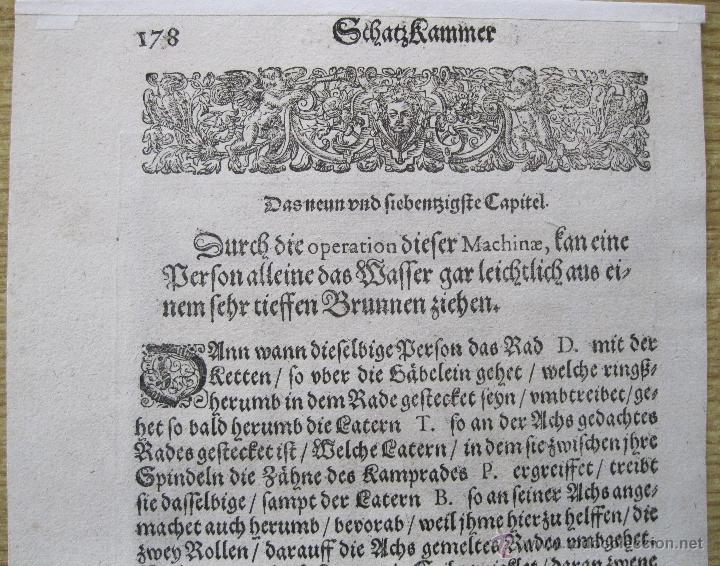 178 SchatzKammer
Das neun vnd siebentzigste Capitel.
Durch die operation dieser Machinæ, kan eine
Person alleine das Wasser gar leichtlich aus ei-
nem sehr tieffen Brunnen ziehen.
DAnn wann dieselbige Person das Rad D. mit der
Ketten / so vber die Gäbelein gehet / welche ringß-
herumb in dem Rade gestecket seyn / vmbtreibet / ge-
het so bald herumb die Latern T. so an der Achs gedachtes
Rades gestecket ist / Welche Latern / in dem sie zwischen jhre
Spindeln die Zähne des Kamprades P. ergreiffet / treibt
sie dasselbige / sampt der Latern B. so an seiner Achs ange-
machet auch herumb / bevorab / weil jhme hier zu helffen / die
zwey Rollen / darauff die Achs gemelten Rades vmbgehet.
daran zwene